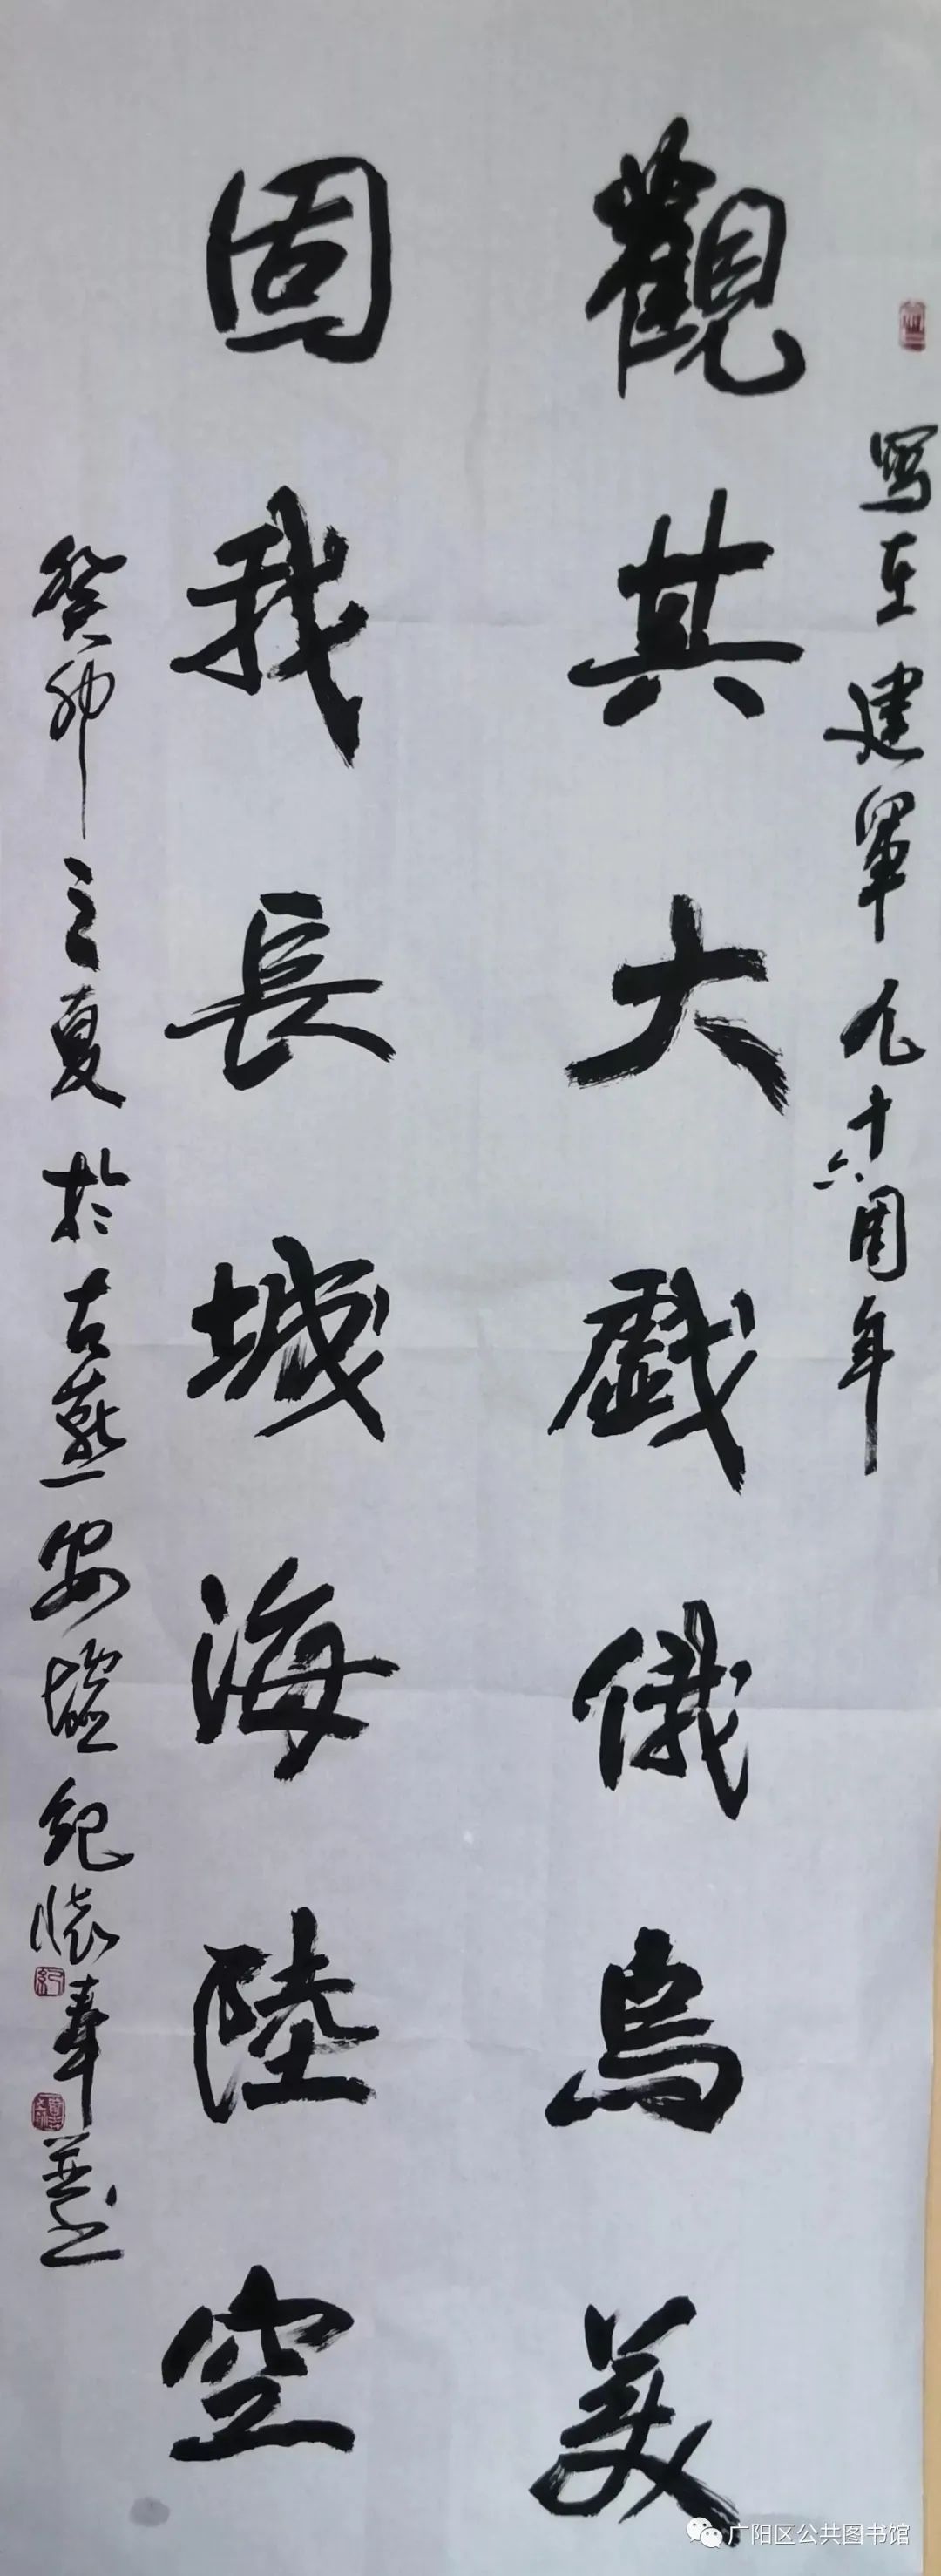 寫在建軍九十六周年
觀其大戲俄烏美
固我長城海陸空
癸卯之夏於古燕安墟紀懷華並書
广阳区公共图书馆